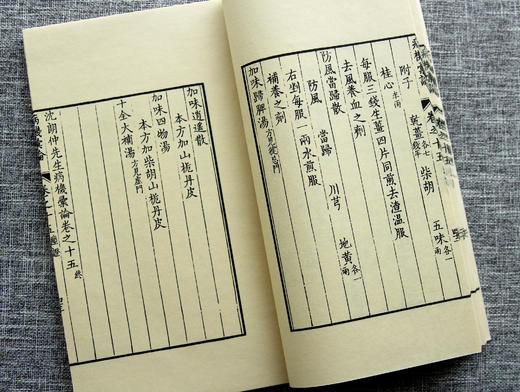 附子 炙薑錢半 各七 柴胡 五味 各一兩
桂心 半兩
每服三錢生薑四片同煎去渣溫服
去風養血之劑
防風當歸散
防風 當歸 川芎 地黃 各一兩
右剉每服一兩水煎服
補養之劑
加味歸脾湯
加味逍遙散
本方加山梔丹皮
加味四物湯
本方加柴胡山梔丹皮
十全大補湯 方見虛門
沈朗仲先生病機彙論卷之十五 終